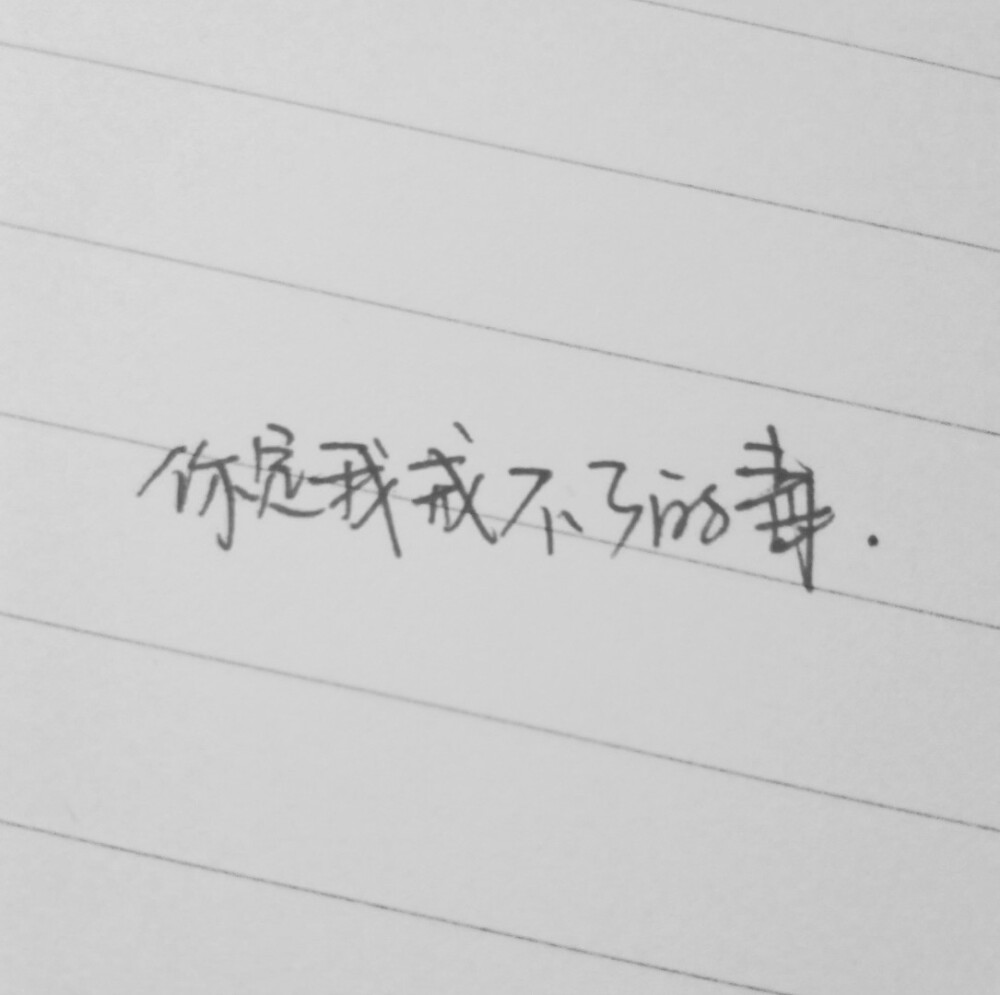 你是我戒不了的毒.